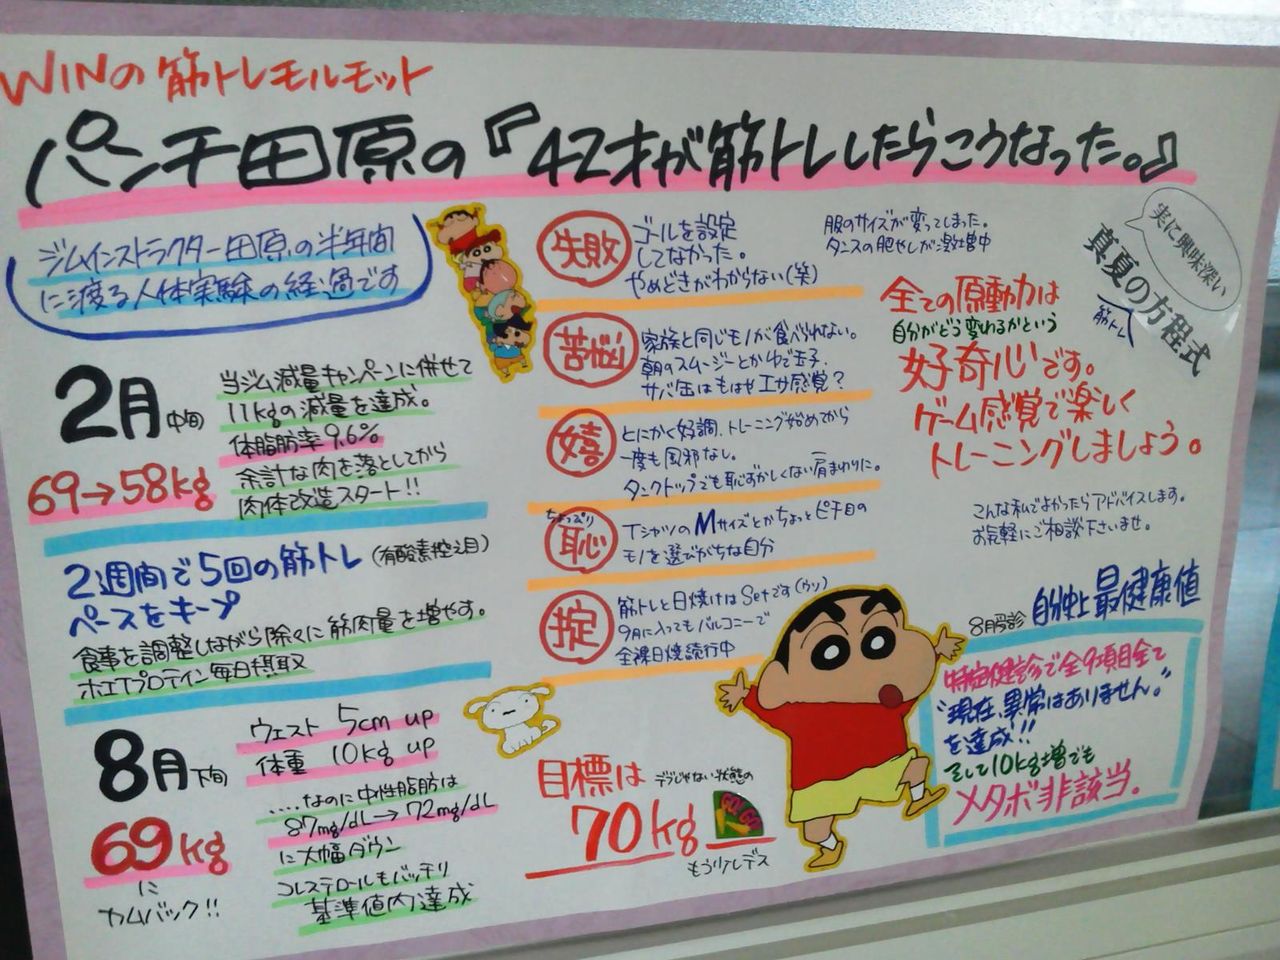 WINの筋トレモルモット
パンチ田原の『42才が筋トレしたらこうなった。』
ジムインストラクター田原の半年間
に渡る人体実験の経過です
2月中旬
69→58kg
当ジム減量キャンペーンに併せて
11kgの減量を達成。
体脂肪率9.6%
余計な肉を落としてから
肉体改造スタート!!
2週間で5回の筋トレ(有酸素控え目)
ペースをキープ
食事を調整しながら除々に筋肉量を増やす。
ホエイプロテイン毎日摂取
8月下旬
69kg
に
カムバック!!
ウェスト 5cm up
体重 10kg up
....なのに中性脂肪は
87mg/dL→72mg/dL
に大幅ダウン
コレステロールもバッチリ
基準値内達成
失敗
ゴールを設定
してなかった。
やめどきがわからない(笑)
服のサイズが変ってしまった。
タンスの肥やしが激増中
苦悩
家族と同じモノが食べられない。
朝のスムージーとかゆで玉子、
サバ缶はもはやエサ感覚?
嬉
とにかく好調、トレーニング始めてから
一度も風邪なし。
タンクトップでも恥ずかしくない肩まわりに。
ちょっぴり
恥
TシャツのMサイズとかちょっとピチ目の
モノを選びがちな自分
掟
筋トレと日焼けはSetです(ウソ)
9月に入ってもバルコニーで
全裸日焼続行中
目標は
デブじゃない状態の
70kg
GO! GO!
もうすぐレデス
実に興味深い
真夏の方程式
筋トレ
全ての原動力は
自分がどう変れるかという
好奇心です。
ゲーム感覚で楽しく
トレーニングしましょう。
こんな私でよかったらアドバイスします。
お気軽にご相談下さいませ。
8月受診 自分史上最健康値
特定健診で全9項目全て
"現在、異常はありません。"
を達成!!
そして10kg増でも
メタボ非該当。